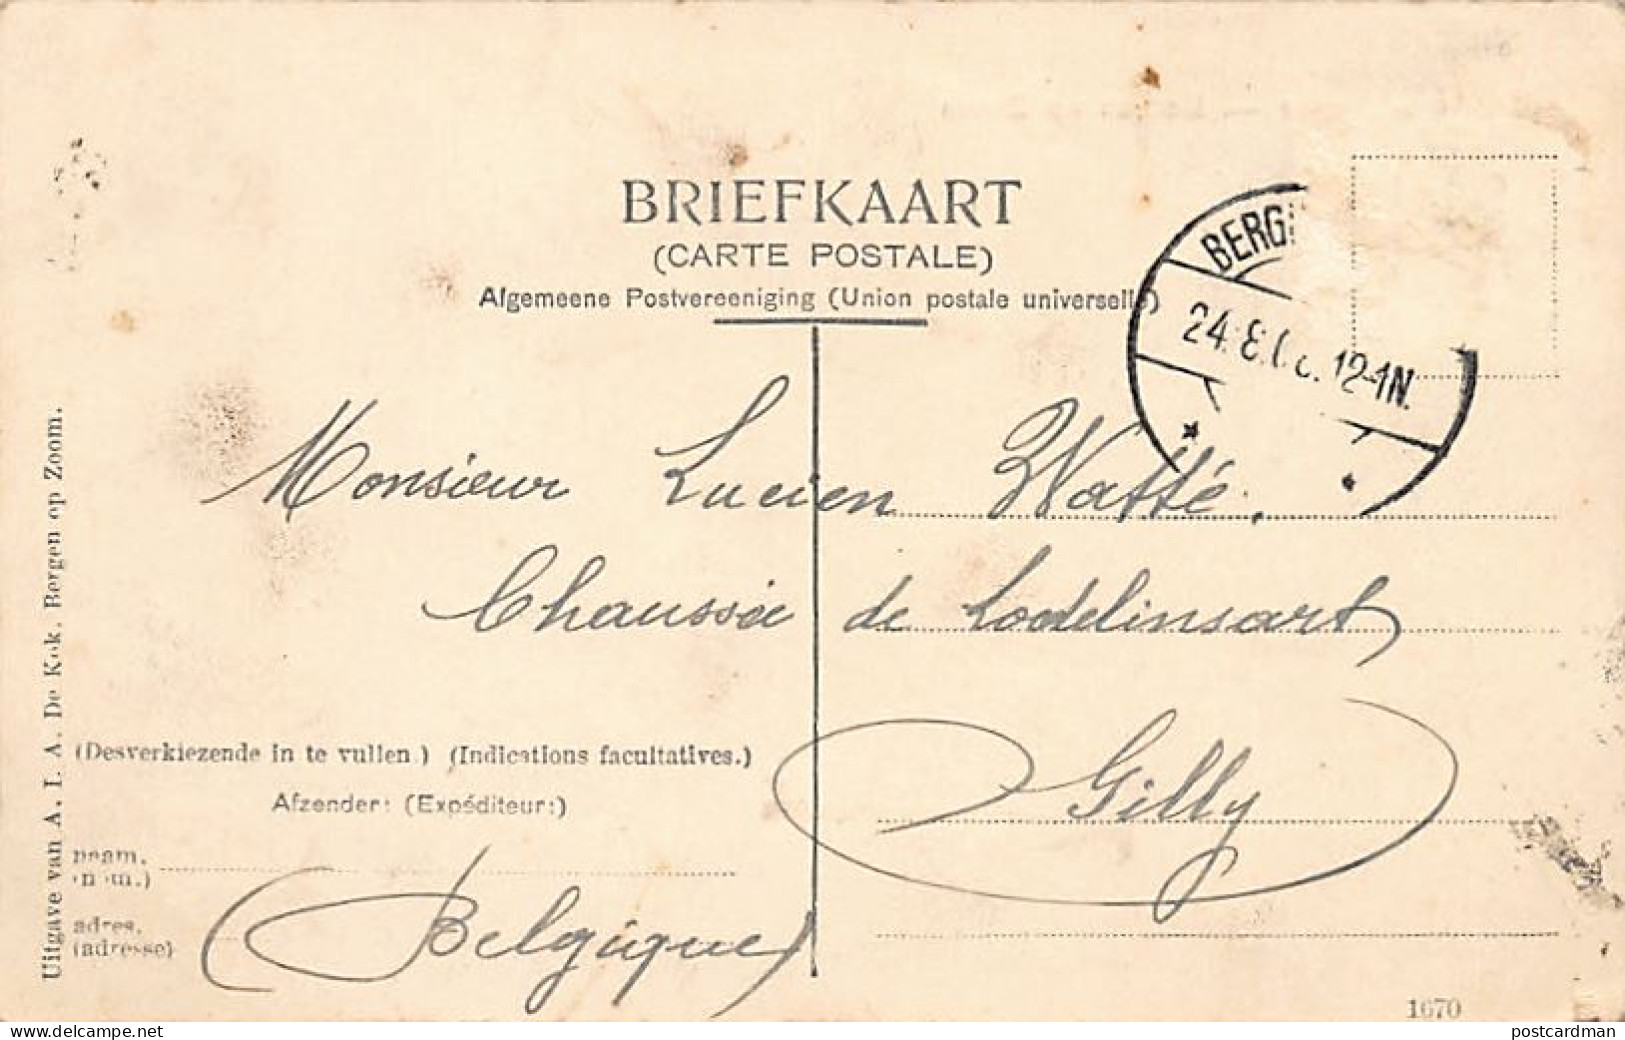 BRIEFKAART
(CARTE POSTALE)
Algemeene Postvereeniging (Union postale universelle)
BERG
24.8. 12-1N.
Monsieur Lucien Watté.
Chaussée de Lodelinsart
Gilly
Belgique
(Desverkiezende in te vullen.) (Indications facultatives.)
Afzender: (Expéditeur:)
naam.
adres.
(adresse)
Uitgave van A. I. A. De Kok. Bergen op Zoom.
1670
www.delcampe.net
postcardman